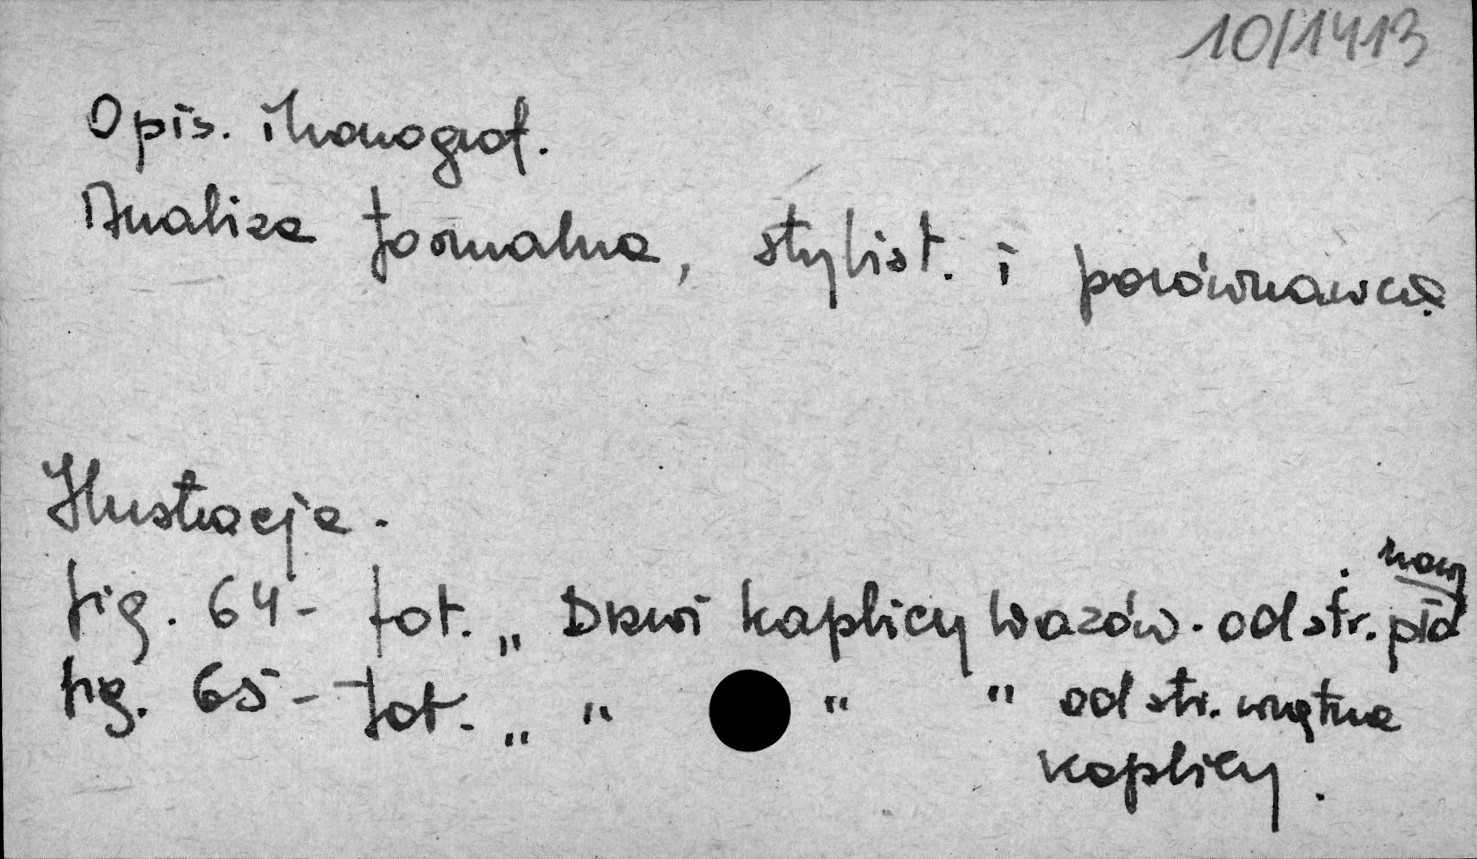 10/1413
Opis. ikonograf.
Analiza formalna, stylist. i porównawcza.
Ilustracje.
nawy
fig. 64 - fot. „ Drzwi kaplicy Wazów. od str. płd
fig. 65 - fot. „ " " " od str. wnętrza
kaplicy.